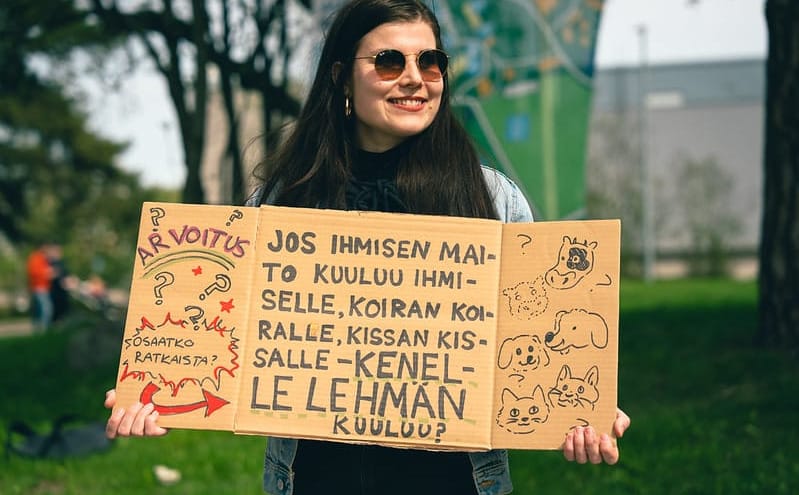 ARVOITUS
OSAATKO
RATKAISTA?
JOS IHMISEN MAI-
TO KUULUU IHMI-
SELLE, KOIRAN KOI-
RALLE, KISSAN KIS-
SALLE – KENEL-
LE LEHMÄN
KUULUU?